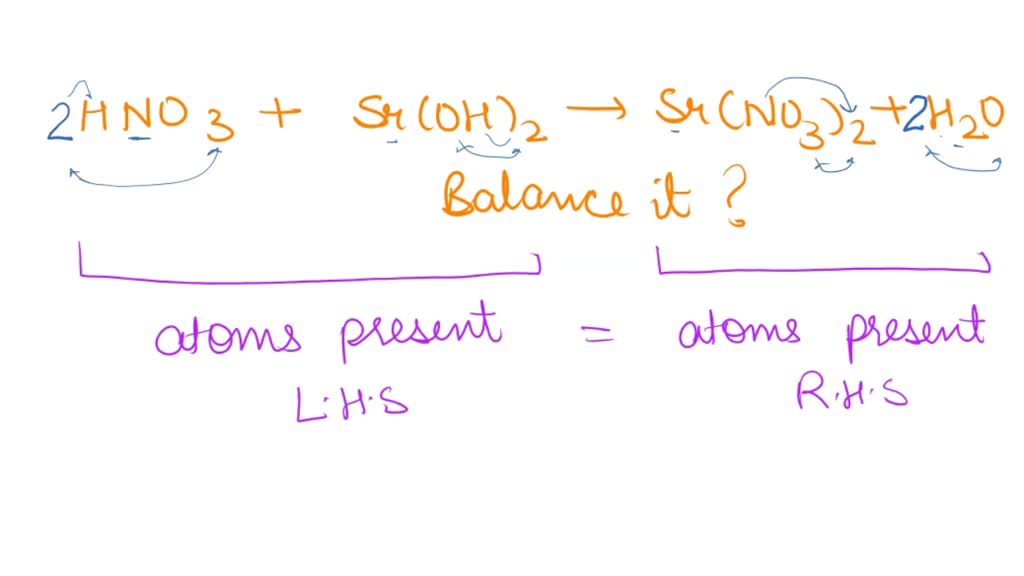 2HNO3 + Sr(OH)2 → Sr(NO3)2 + 2H2O
Balance it ?
atoms present = atoms present
L.H.S R.H.S